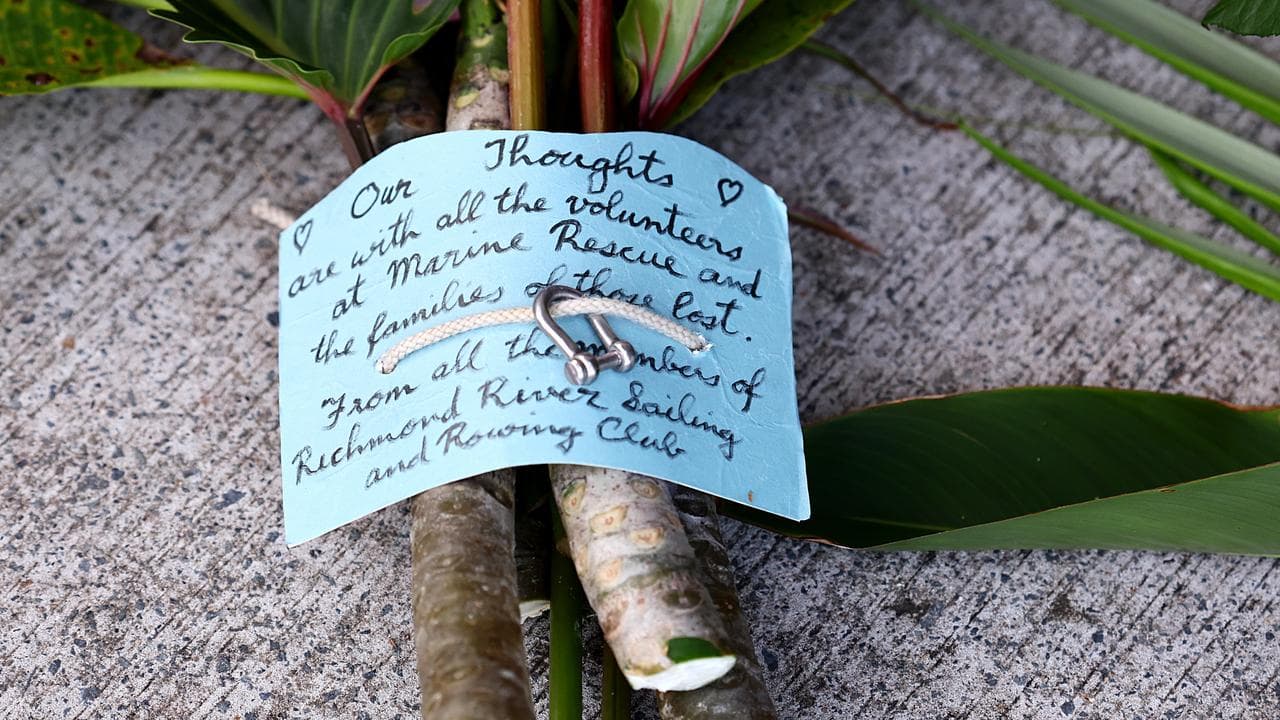 Our Thoughts
are with all the volunteers
at Marine Rescue and
the families of those lost.
From all the members of
Richmond River Sailing
and Rowing Club